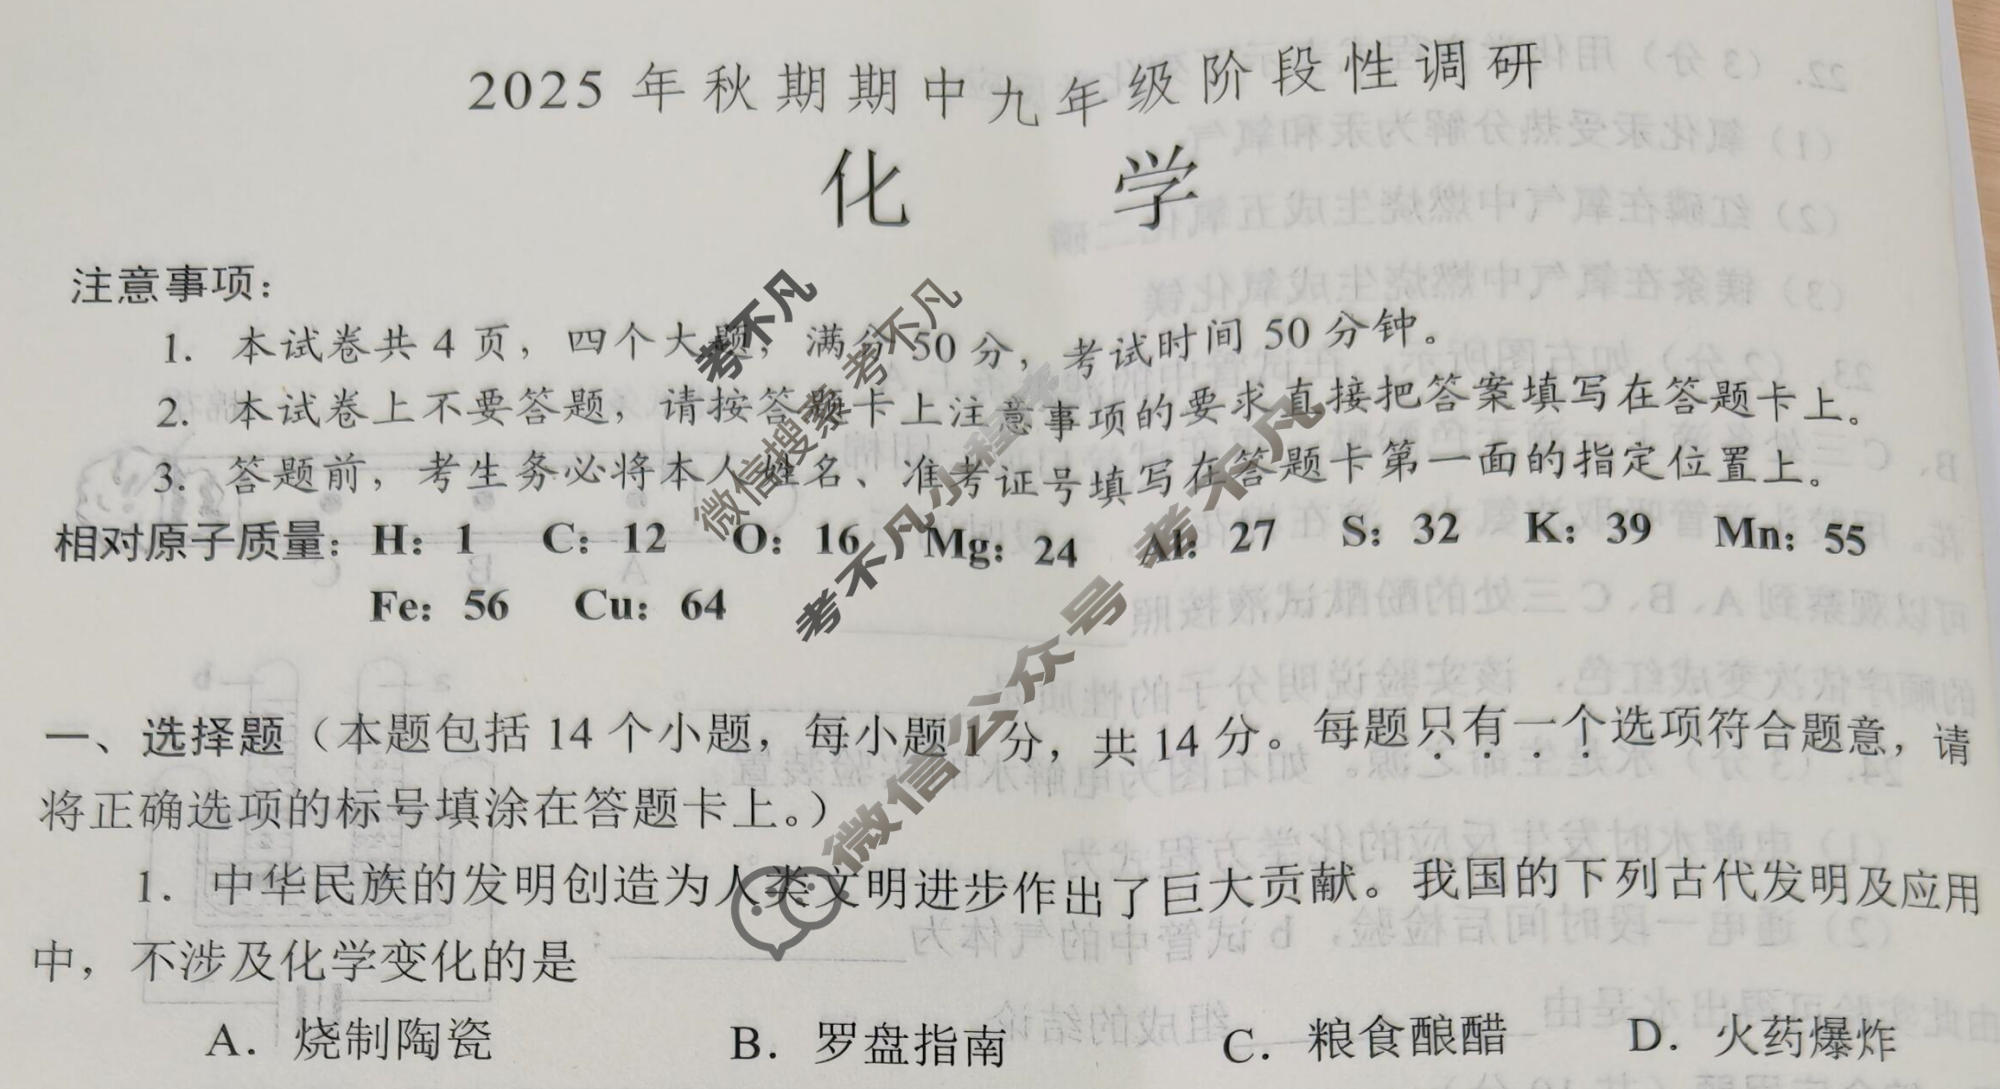 2025年秋期期中九年级阶段性调研
化 学
注意事项：
1. 本试卷共4页，四个大题，满分50分，考试时间50分钟。
2. 本试卷上不要答题，请按答题卡上注意事项的要求直接把答案填写在答题卡上。
3. 答题前，考生务必将本人姓名、准考证号填写在答题卡第一面的指定位置上。
相对原子质量：H：1 C：12 O：16 Mg：24 Al：27 S：32 K：39 Mn：55
Fe：56 Cu：64
一、选择题（本题包括14个小题，每小题1分，共14分。每题只有一个选项符合题意，请
将正确选项的标号填涂在答题卡上。）
1. 中华民族的发明创造为人类文明进步作出了巨大贡献。我国的下列古代发明及应用
中，不涉及化学变化的是
A. 烧制陶瓷 B. 罗盘指南 C. 粮食酿醋 D. 火药爆炸
考不凡
微信搜索 考不凡
考不凡小程序
微信公众号 考不凡